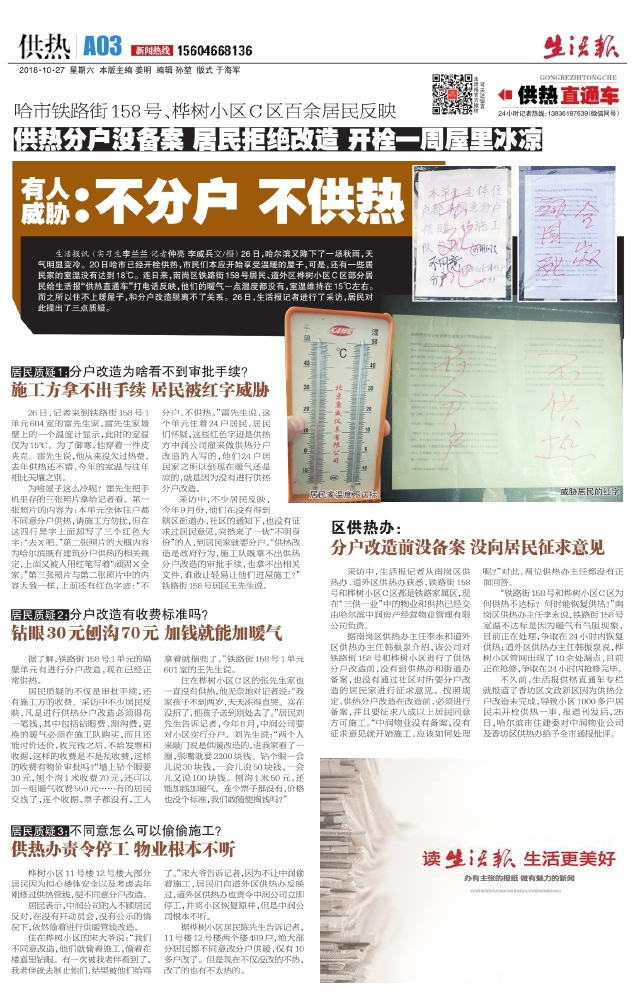 供热 A03 新闻热线 15604668136
2018·10·27 星期六 本版主编 姜明 编辑 孙堃 版式 于海军
生活报
GONGREZHITONGCHE
供热直通车
24小时记者热线:13836187639(微信同号)
哈市铁路街158号、桦树小区C区百余居民反映
供热分户没备案 居民拒绝改造 开栓一周屋里冰凉
有人威胁:不分户 不供热
生活报讯(实习生李兰兰 记者仲亮 李威兵文/摄)26日,哈尔滨又降下了一场秋雨,天
气明显变冷。20日哈市已经开栓供热,市民们本应开始享受温暖的屋子,可是,还有一些居
民家的室温没有达到18℃。连日来,南岗区铁路街158号居民、道外区桦树小区C区部分居
民给生活报“供热直通车”打电话反映,他们的暖气一点温度都没有,室温维持在15℃左右。
而之所以住不上暖屋子,和分户改造脱离不了关系。26日,生活报记者进行了采访,居民对
此提出了三点质疑。
居民质疑1:分户改造为啥看不到审批手续?
施工方拿不出手续 居民被红字威胁
26日,记者来到铁路街158号1
单元604室的雷先生家,雷先生家墙
壁上的一个温度计显示,此时的室温
仅为15℃。为了御寒,他穿着一件皮
夹克。雷先生说,他从来没欠过热费,
去年供热还不错,今年的室温与往年
相比天壤之别。
为啥屋子这么冷呢?雷先生把手
机里存的三张照片拿给记者看。第一
张照片的内容为:本单元全体住户都
不同意分户供热,请施工方勿扰,但在
这四行黑字上面却写了三个红色大
字:“去X吧。”第二张照片的大概内容
为哈尔滨既有建筑分户供热的相关规
定,上面又被人用红笔写着“顽固X全
家。”第三张照片与第二张照片中的内
容大致一样,上面还有红色字迹:“不
分户,不供热。”雷先生说,这
个单元住着24户居民,居民
们怀疑,这些红色字迹是供热
方中润公司雇来做供热分户
改造的人写的,他们24户居
民家之所以到现在暖气还是
凉的,就是因为没有进行供热
分户改造。
采访中,不少居民反映,
今年9月份,他们在没有得到
辖区街道办、社区的通知下,也没有征
求过居民意见,突然来了一伙“不明身
份”的人,到居民家就要分户。“供热改
造是政府行为,施工队既拿不出供热
分户改造的审批手续,也拿不出相关
文件,谁敢让轻易让他们进屋施工?”
铁路街158号居民王先生说。
居民家温度不达标
威胁居民的红字
居民质疑2:分户改造有收费标准吗?
钻眼30元刨沟70元 加钱就能加暖气
据了解,铁路街158号1单元的隔
壁单元有进行分户改造,现在已经正
常供热。
居民质疑的不仅是审批手续,还
有施工方的收费。采访中不少居民反
映,凡是进行供热分户改造必须得花
一笔钱,其中包括钻眼费、刨沟费,更
换的暖气必须在施工队购买,而且还
能讨价还价,收完钱之后,不给发票和
收据,这样的收费是不是乱收费,这样
的收费有物价审批吗?“墙上钻个眼要
30元,刨个沟1米收费70元,还可以
加一组暖气收费550元……有的居民
交钱了,连个收据、票子都没有,工人
拿着就揣兜了。”铁路街158号1单元
601室的王先生说。
住在桦树小区C区的张先生家也
一直没有供热,他无奈地对记者说:“我
家孩子不到两岁,天天冻得直哭。实在
没招了,把孩子送到别处去了。”居民刘
先生告诉记者,今年8月,中润公司要
对小区实行分户。刘先生说:“两个人
来敲门说是供暖改造的,进我家看了一
圈,张嘴就要2200块钱。钻个眼一会
儿说30块钱,一会儿说50块钱,一会
儿又说100块钱。刨沟1米50元,还
能加钱加暖气。连个票子都没有,价格
也没个标准,我们敢随便掏钱吗?”
居民质疑3:不同意怎么可以偷偷施工?
供热办责令停工 物业根本不听
桦树小区11号楼12号楼大部分
居民因为担心楼体安全以及考虑去年
刚修过供热管线,便不同意分户改造。
居民表示,中润公司的人不顾居民
反对,在没有开动员会,没有公示的情
况下,依然偷着进行供暖管线改造。
住在桦树小区的宋大爷说:“我们
不同意改造,他们就偷着施工,偷着在
楼道里钻眼。有一次被我老伴看到了,
我老伴就去制止他们,结果被他们给骂
了。”宋大爷告诉记者,因为不让中润偷
着施工,居民们向道外区供热办反映
过,道外区供热办也责令中润公司立即
停工,并将小区恢复原样,但是中润公
司根本不听。
据桦树小区居民陈先生告诉记者,
11号楼12号楼两个楼489户,绝大部
分居民都不同意改分户供暖,仅有10
多户改了。但是现在不仅没改的不热,
改了的也有不太热的。
区供热办:
分户改造前没备案 没向居民征求意见
采访中,生活报记者从南岗区供
热办、道外区供热办获悉,铁路街158
号和桦树小区C区都是铁路家属区,现
在“三供一业”中的物业和供热已经交
由哈尔滨中润房产经营物业管理有限
公司负责。
据南岗区供热办主任李永和道外
区供热办主任韩振泉介绍,该公司对
铁路街158号和桦树小区进行了供热
分户改造前,没有到供热办和街道办
备案,也没有通过社区对所要分户改
造的居民家进行征求意见。按照规
定,供热分户改造在改造前,必须进行
备案,并且要征求八成以上居民同意
方可施工。“中润物业没有备案,没有
征求意见就开始施工,应该如何处理
呢?”对此,两位供热办主任都没有正
面回答。
“铁路街158号和桦树小区C区为
何供热不达标?何时能恢复供热?”南
岗区供热办主任李永说,铁路街158号
室温不达标是因为暖气有气阻现象,
目前正在处理,争取在24小时内恢复
供热;道外区供热办主任韩振泉说,桦
树小区管网出现了10余处漏点,目前
正在抢修,争取在24小时内抢修完毕。
不久前,生活报供热直通车专栏
就报道了香坊区文政新区因为供热分
户改造未完成,导致小区1000多户居
民未开栓供热一事,报道刊发后,25
日,哈尔滨市住建委对中润物业公司
及香坊区供热办给予全市通报批评。
读 生活报 生活更美好
办有主张的报纸 做有魅力的新闻